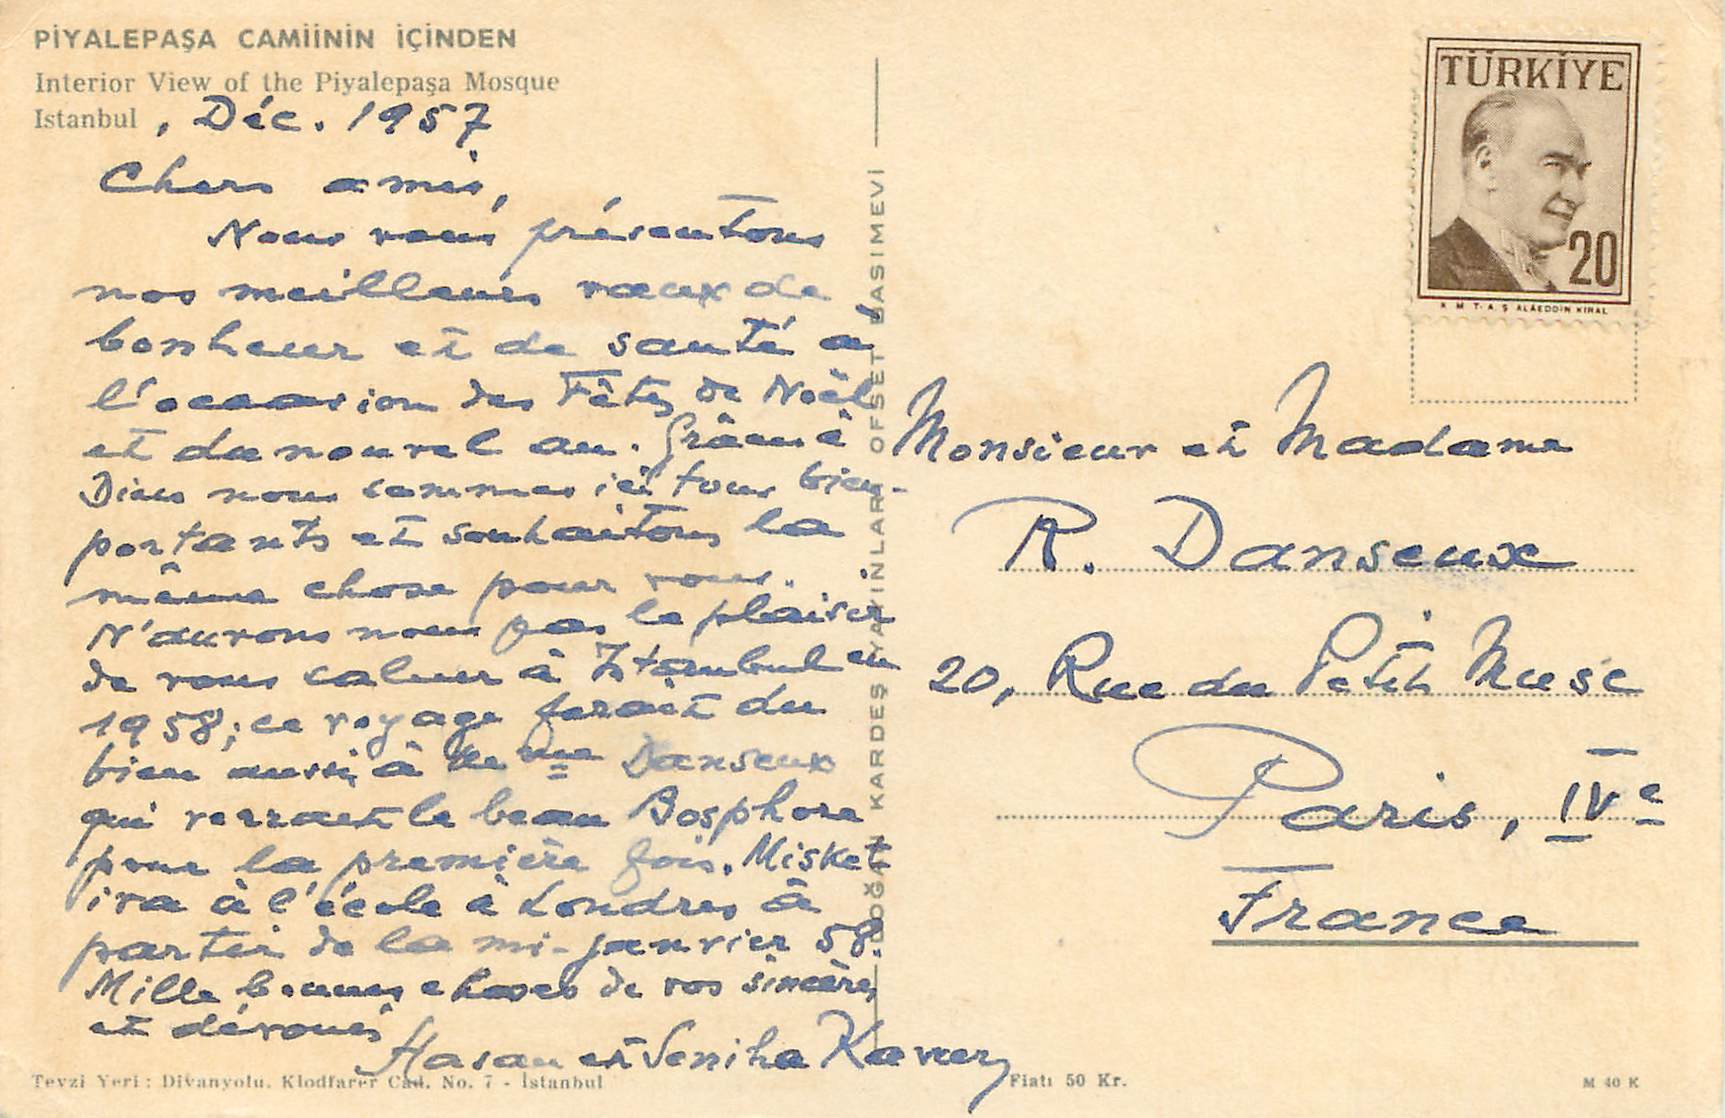 PİYALEPAŞA CAMİİNİN İÇİNDEN
Interior View of the Piyalepaşa Mosque
Istanbul , Déc. 1957
Chers amis,
Nous vous présentons
nos meilleurs vœux de
bonheur et de santé à
l'occasion des Fêtes de Noël
et du nouvel an. Grâce à
Dieu nous sommes ici tous bien-
portants et souhaitons la
même chose pour vous.
N'aurons nous pas le plaisir
de vous saluer à Istanbul en
1958; ce voyage ferait du
bien aussi à Mme Danseux
qui verrait le beau Bosphore
pour la première fois. Misket
ira à l'école à Londres à
partir de la mi-janvier 58.
Mille bonnes choses de vos sincères
et dévoués
Hasan et Seniha
Tevzi Yeri : Divanyolu. Klodfarer Cad. No. 7 - İstanbul
DOĞAN KARDEŞ YAYINLARI OFSET BASIMEVİ
TÜRKİYE
20
K M T. A. Ş ALÂEDDİN KIRAL
Monsieur et Madame
R. Danseux
20, Rue du Petit Musc
Paris, IVe
France
Fiatı 50 Kr.
M 40 K